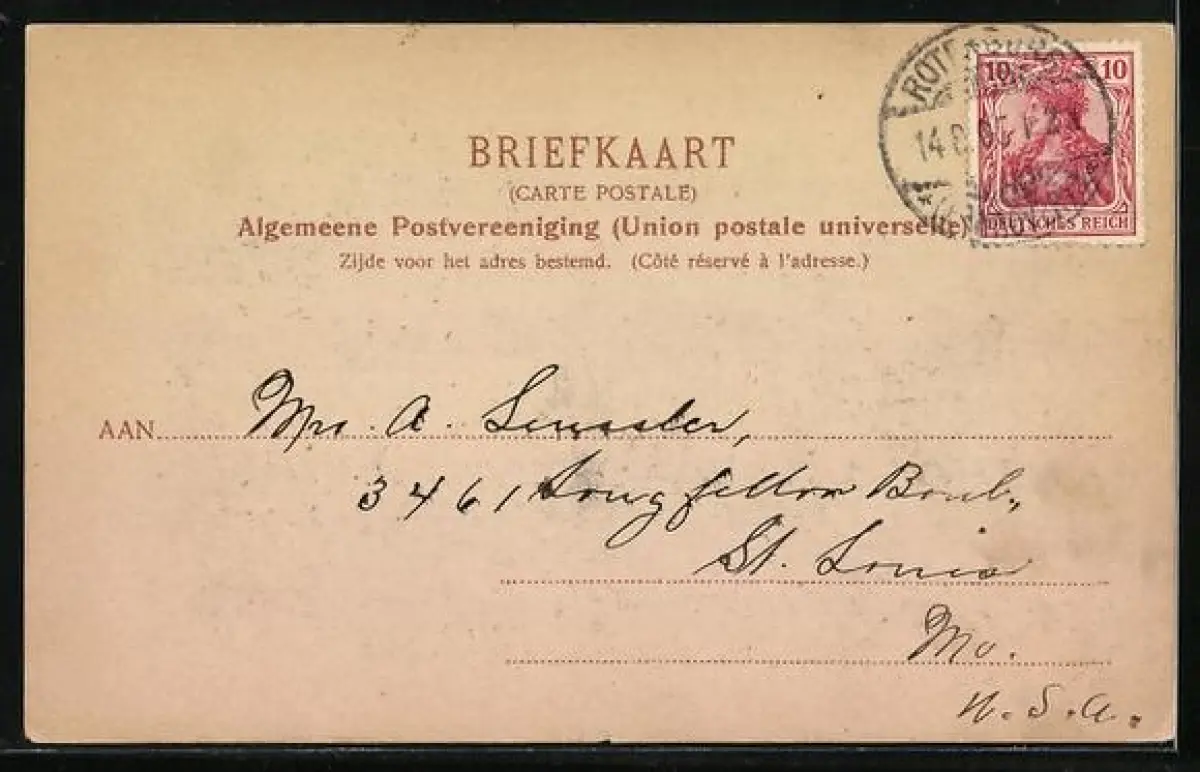 BRIEFKAART
(CARTE POSTALE)
Algemeene Postvereeniging (Union postale universelle)
Zijde voor het adres bestemd. (Côté réservé à l'adresse.)
10 10
DEUTSCHES REICH
AAN Mrs. A.
3461 Longfellow Boul.,
St. Louis
Mo.
U.S.A.